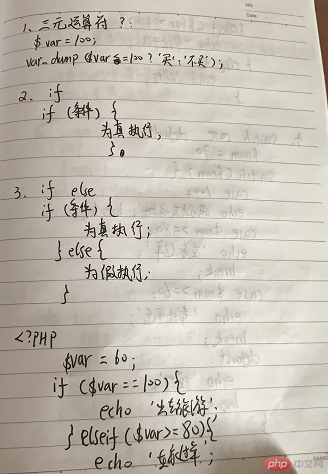 NO.
Date
1、三元运算符 ?:
$var = 100;
var_dump ($var == 100 ? '买' : '不买');
2. if
if (条件) {
为真执行;
}。
3. if else
if (条件) {
为真执行;
} else {
为假执行;
}
<?PHP
$var = 60;
if ($var == 100) {
echo '去旅游';
} elseif ($var >= 80) {
echo '
php 中文网